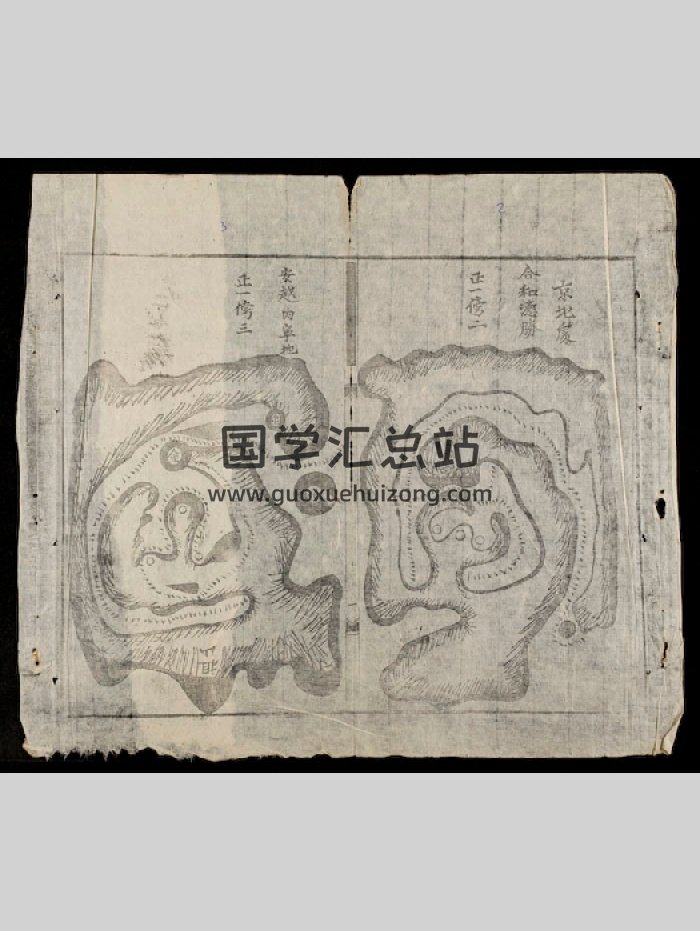 2
京北處
合和德勝
正一傍二
3
安越內阜地
正一傍三
国学汇总站
www.guoxuehuizong.com